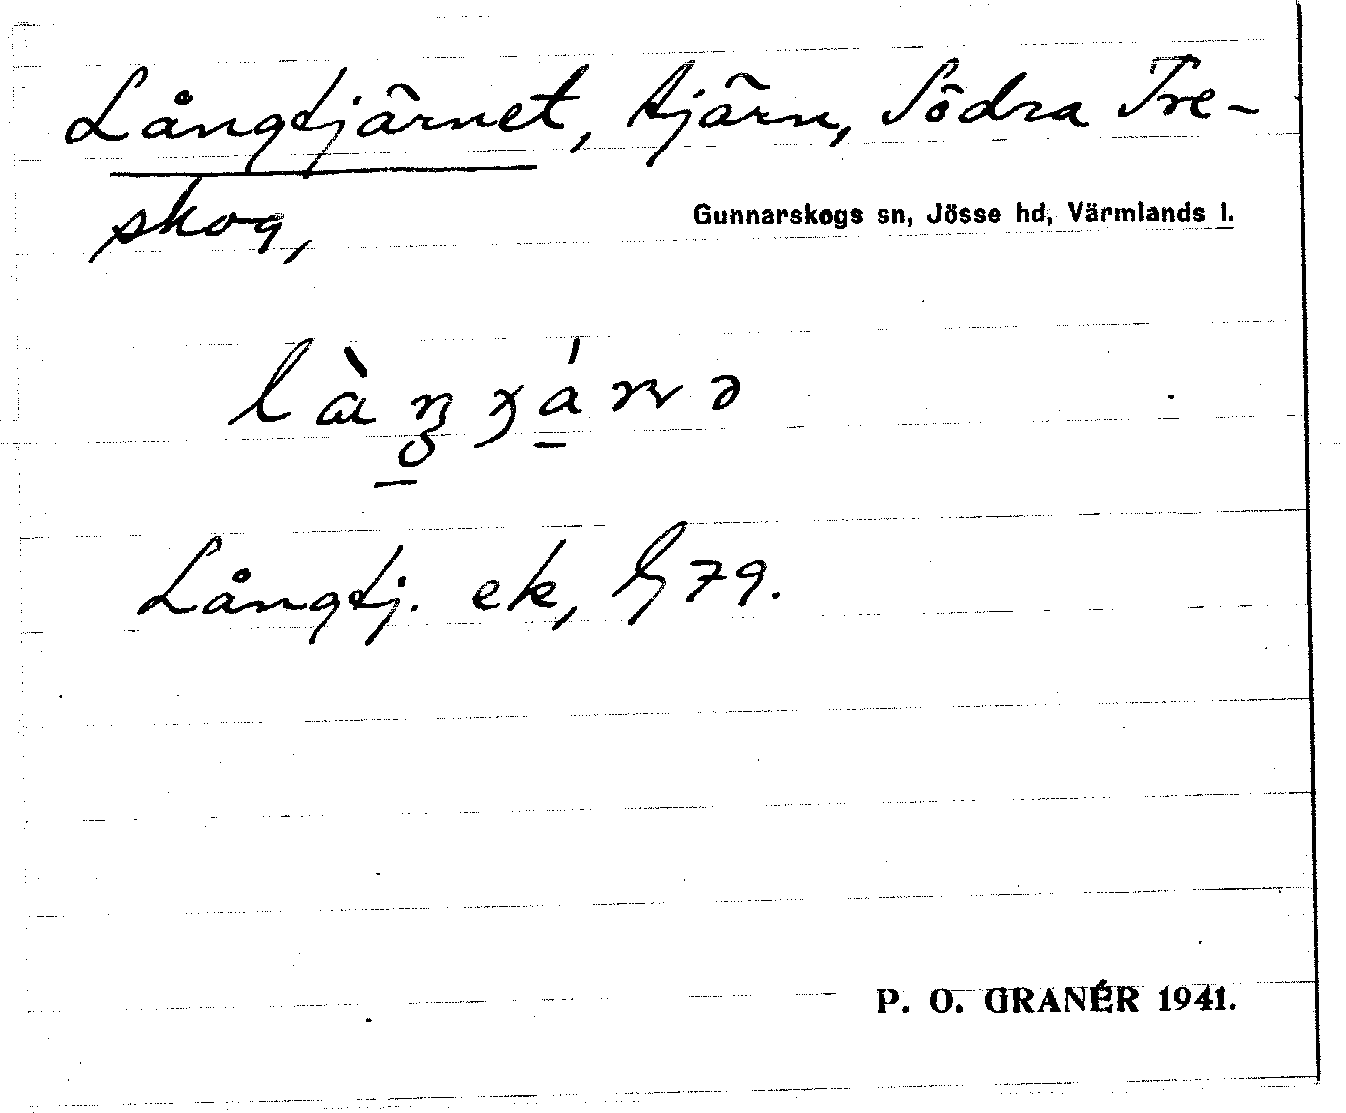 Långtjärnet, tjärn, Södra Tre-
skog,
Gunnarskogs sn, Jösse hd, Värmlands l.
Långtj. ek, G 79.
P. O. GRANÉR 1941.